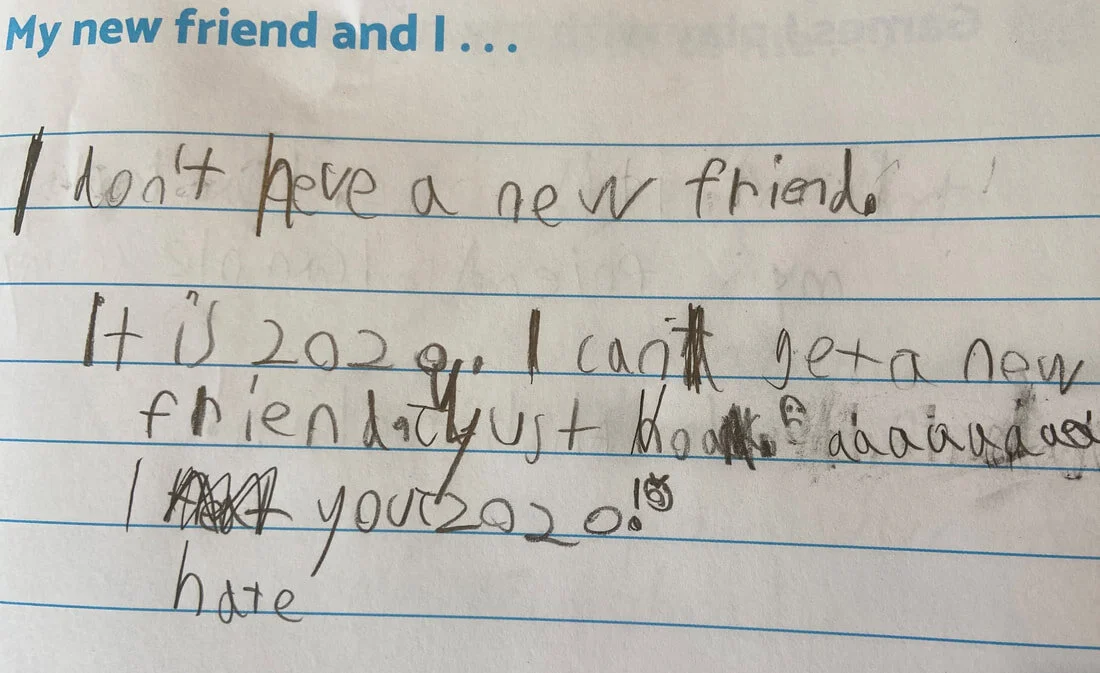 My new friend and I . . .
I don't heve a new friend.
It is 2020.. I can't get a new
friend. Just aaaaaaaaa
I you 2020!
hate